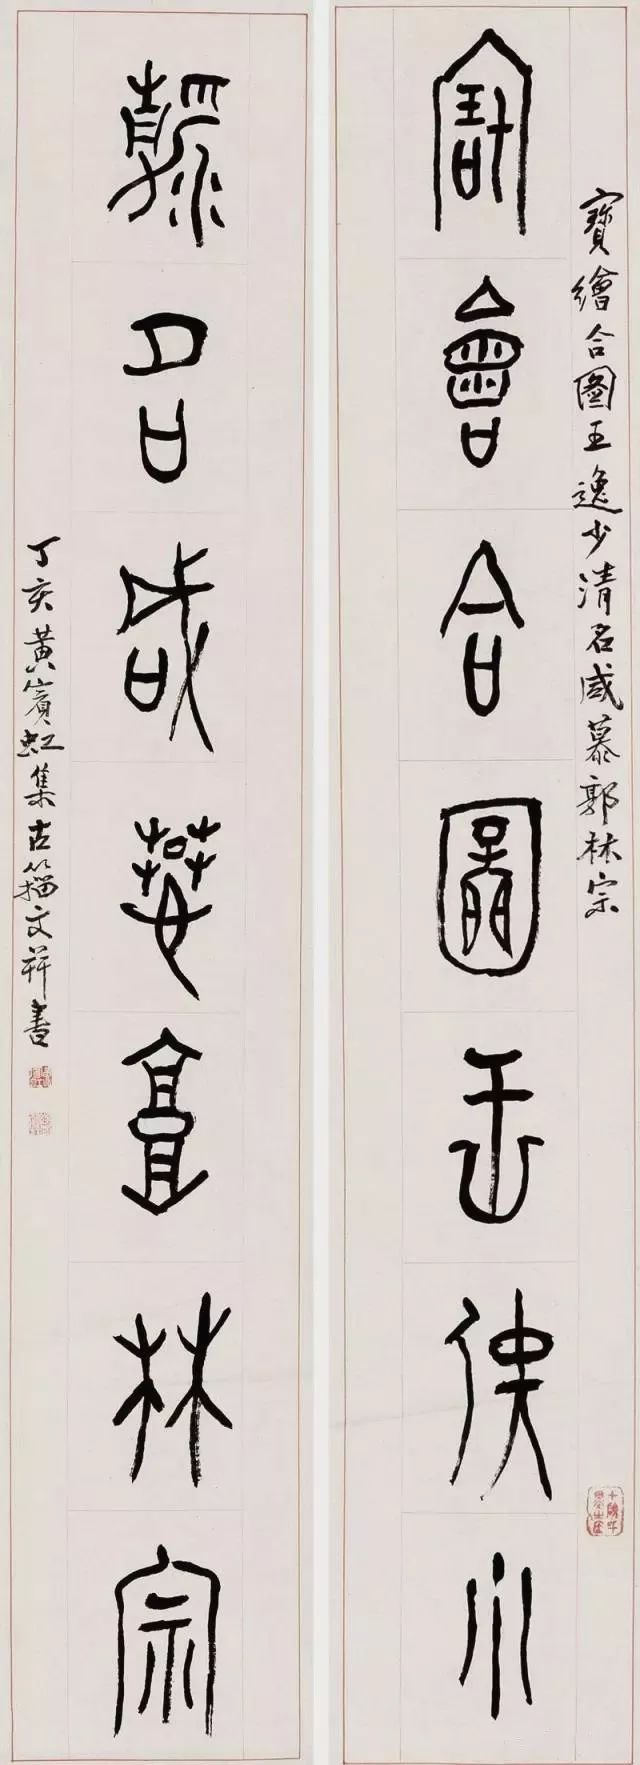 寶繪合圖王逸少清名咸慕郭林宗
寶繪合圖王逸少
清名咸慕郭林宗
丁亥黃賓虹集古籀文并書